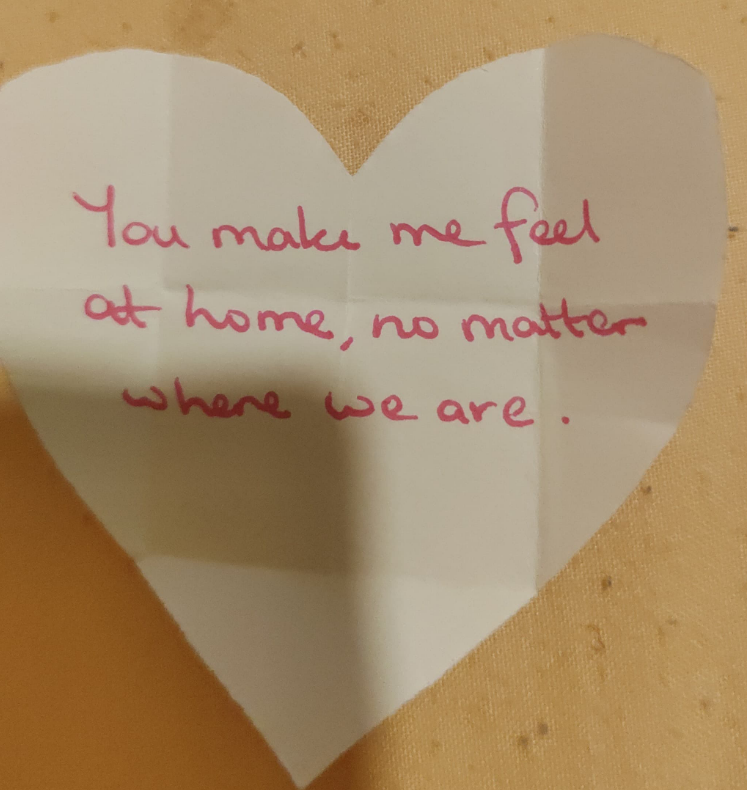 You make me feel
at home, no matter
where we are.